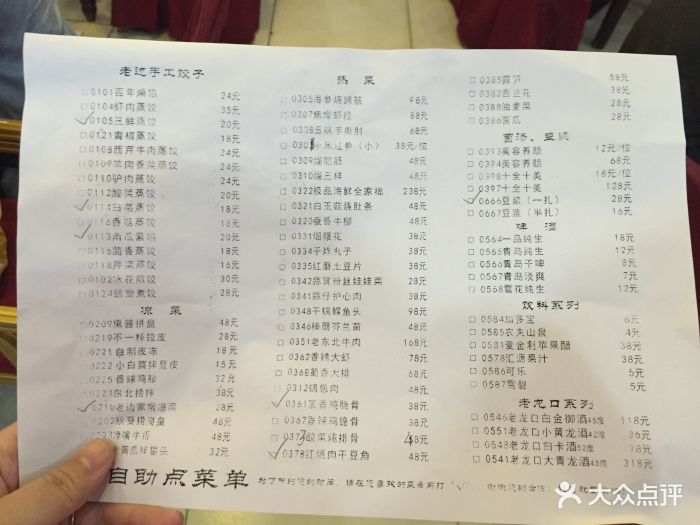 老边手工饺子
□0101百年煸馅 24元
□0104虾肉蒸饺 35元
□0105三鲜蒸饺 20元
□0121青椒蒸饺 18元
□0108西芹牛肉蒸饺 24元
□0109羊肉香菜蒸饺 24元
□0110驴肉蒸饺 24元
□0112酸菜蒸饺 20元
□0114白菜蒸饺 18元
□0116香菇蒸饺 18元
□0113角瓜素馅 20元
□0115茴香蒸饺 16元
□0118芹菜蒸饺 16元
□0102冰花煎饺 30元
□0124 煮饺 28元
凉菜
□0209熏酱拼盘 48元
□0219不一样拉皮 28元
□0221自制皮冻 18元
□0222小白菜拌豆皮 15元
□0225香辣鸡胗 32元
□0223东北捞拌 38元
□0210老边家常凉菜 28元
秋葵捞海皇 48元
馋嘴牛舌 48元
老黄瓜拌蜇头 32元
热菜
□0305海参烧蹄筋 98元
□0307焦熘虾段 88元
□0308五味手撕肘 68元
小米辽参（小） 38元/位
□0309熘肥肠 48元
□0310熘三样 48元
□0322极品海鲜全家福 238元
□0321白玉菇烧肚条 48元
□0320蚕香牛柳 48元
□0331熘腰花 38元
□0334干炸丸子 38元
□0335红蘑土豆片 38元
□0342蒜蓉粉丝娃娃菜 38元
□0341蒜仔护心肉 38元
□0348干锅鲽鱼头 98元
□0346榛蘑芥兰苗 48元
□0351老东北牛肉 168元
□0362香烤大虾 78元
□0368脆香大排 68元
□0312锅包肉 48元
□0361茶香鸡脆骨 38元
□0367香辣鸡脆骨 38元
酸菜炖排骨 48元
□0378红烧肉干豆角 48元
□0385露笋 58元
□0382西兰花 38元
□0388油麦菜 28元
□0386苦瓜 28元
菌汤、豆浆
□0393美容养颜 12元/位
□0394美容养颜 68元
□0398十全十美 18元/位
□0397十全十美 128元
□0666豆浆（一扎） 28元
□0667豆浆（半扎） 16元
啤酒
□0564一品纯生 18元
□0565青岛纯生 12元
□0566青岛干啤 8元
□0567青岛淡爽 7元
□0568雪花纯生 12元
饮料系列
□0584加多宝 6元
□0585农夫山泉 4元
□0581爱金利苹果醋 38元
□0583汇源果汁 38元
□0586可乐 5元
□0587雪碧 5元
老龙口系列
□0546老龙口白金御酒46度 118元
□0551老龙口小黄龙酒42度 36元
□0552老龙口白卡酒52度 78元
□0541老龙口大青龙酒46度 318元
自助点菜单 为了节约您的时间，请在您喜欢的菜肴前打“√”，谢谢您的合作，
大众点评